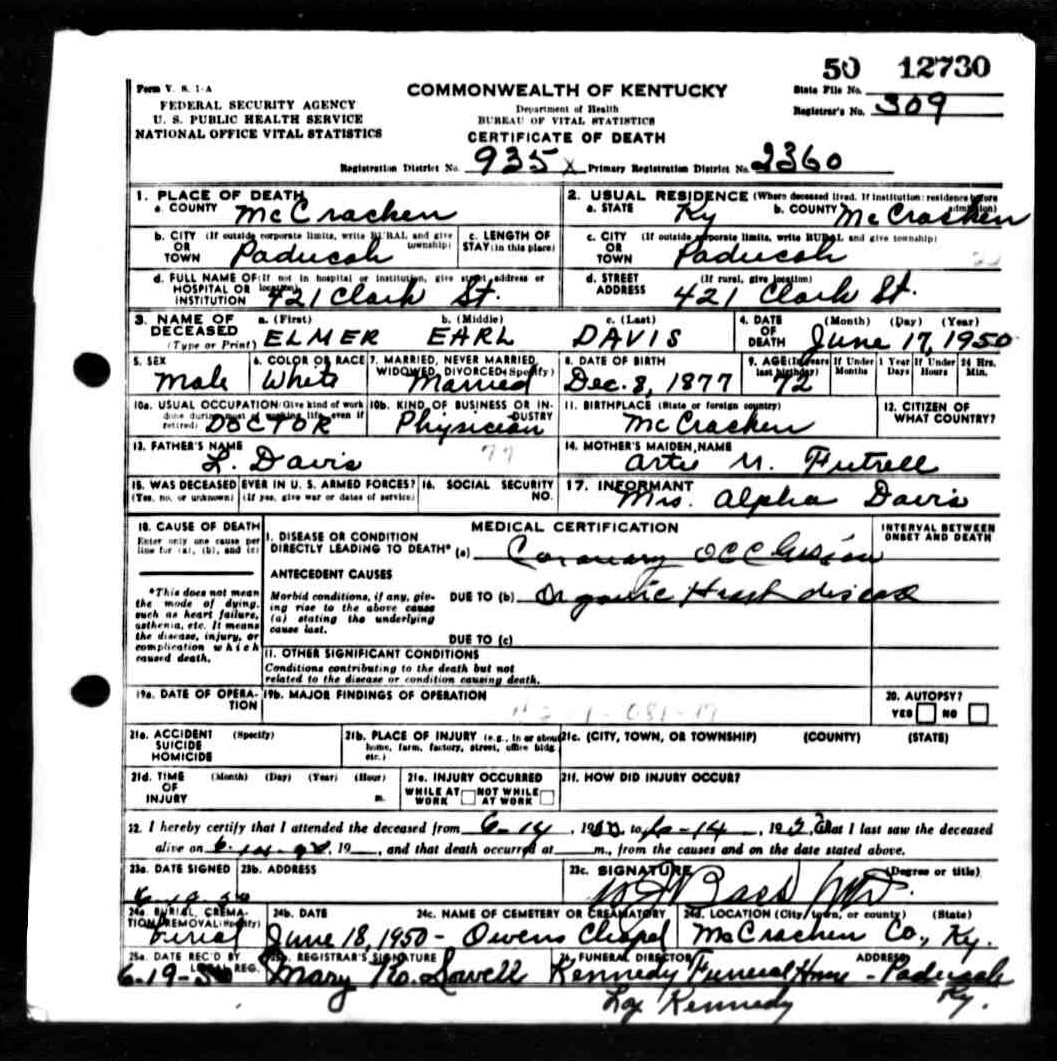 50 12730
Form V. S. 1-A
FEDERAL SECURITY AGENCY
U. S. PUBLIC HEALTH SERVICE
NATIONAL OFFICE VITAL STATISTICS
COMMONWEALTH OF KENTUCKY
Department of Health
BUREAU OF VITAL STATISTICS
CERTIFICATE OF DEATH
State File No.
Registrar's No. 309
Registration District No. 935 X Primary Registration District No. 2360
1. PLACE OF DEATH
a. COUNTY McCracken
2. USUAL RESIDENCE (Where deceased lived. If institution: residence before admission)
a. STATE Ky b. COUNTY McCracken
b. CITY (If outside corporate limits, write RURAL and give township)
OR TOWN Paducah
c. LENGTH OF STAY (in this place)
c. CITY (If outside corporate limits, write RURAL and give township)
OR TOWN Paducah
d. FULL NAME OF (If not in hospital or institution, give street address or location)
HOSPITAL OR INSTITUTION 421 Clark St.
d. STREET ADDRESS (If rural, give location)
421 Clark St.
3. NAME OF DECEASED (Type or Print)
a. (First) b. (Middle) c. (Last)
ELMER EARL DAVIS
4. DATE OF DEATH (Month) (Day) (Year)
June 17, 1950
5. SEX
Male
6. COLOR OR RACE
White
7. MARRIED, NEVER MARRIED, WIDOWED, DIVORCED (Specify)
Married
8. DATE OF BIRTH
Dec. 8, 1877
9. AGE (In years last birthday)
72
If Under 1 Year Months Days
If Under 24 Hrs. Hours Min.
10a. USUAL OCCUPATION (Give kind of work done during most of working life, even if retired)
DOCTOR
10b. KIND OF BUSINESS OR INDUSTRY
Physician
11. BIRTHPLACE (State or foreign country)
McCracken
12. CITIZEN OF WHAT COUNTRY?
13. FATHER'S NAME
L. Davis
77
14. MOTHER'S MAIDEN NAME
Artie M. Futrell
15. WAS DECEASED EVER IN U. S. ARMED FORCES?
(Yes, no, or unknown) (If yes, give war or dates of service)
16. SOCIAL SECURITY NO.
17. INFORMANT
Mrs. Alpha Davis
18. CAUSE OF DEATH
Enter only one cause per line for (a), (b), and (c)
*This does not mean the mode of dying, such as heart failure, asthenia, etc. It means the disease, injury, or complication which caused death.
MEDICAL CERTIFICATION
INTERVAL BETWEEN ONSET AND DEATH
I. DISEASE OR CONDITION
DIRECTLY LEADING TO DEATH* (a) Coronary Occlusion
ANTECEDENT CAUSES
Morbid conditions, if any, giving rise to the above cause (a) stating the underlying cause last.
DUE TO (b) Organic Heart disease
DUE TO (c)
II. OTHER SIGNIFICANT CONDITIONS
Conditions contributing to the death but not related to the disease or condition causing death.
19a. DATE OF OPERATION
19b. MAJOR FINDINGS OF OPERATION
20. AUTOPSY?
YES NO
21a. ACCIDENT (Specify)
SUICIDE
HOMICIDE
21b. PLACE OF INJURY (e.g., in or about home, farm, factory, street, office bldg. etc.)
21c. (CITY, TOWN, OR TOWNSHIP) (COUNTY) (STATE)
21d. TIME OF INJURY (Month) (Day) (Year) (Hour) m.
21e. INJURY OCCURRED
WHILE AT WORK NOT WHILE AT WORK
21f. HOW DID INJURY OCCUR?
22. I hereby certify that I attended the deceased from 6-14, 19 to 6-14, 19, that I last saw the deceased
alive on 19, and that death occurred at m., from the causes and on the date stated above.
23a. DATE SIGNED
23b. ADDRESS
23c. SIGNATURE (Degree or title)
Bass MD.
24a. BURIAL, CREMATION, REMOVAL (Specify)
burial
24b. DATE
June 18, 1950 -
24c. NAME OF CEMETERY OR CREMATORY
Owens Chapel
24d. LOCATION (City, town, or county) (State)
McCracken Co., Ky.
25a. DATE REC'D BY LOCAL REG.
6-19-50
25b. REGISTRAR'S SIGNATURE
Mary
26. FUNERAL DIRECTOR ADDRESS
Kennedy Funeral Home - Paducah
Ky.
Loy Kennedy